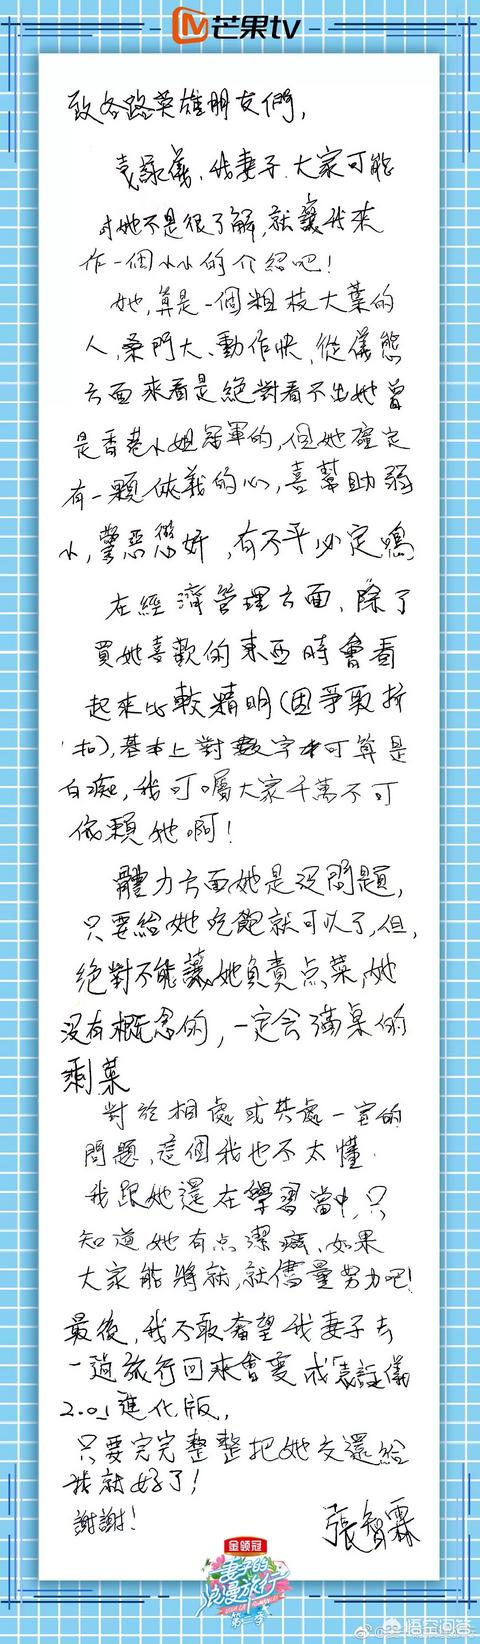 芒果tv
致各路英雄朋友們，
袁詠儀、我妻子、大家可能
对她不是很了解，就讓我來
作一個小小的介紹吧！
她，算是一個粗枝大葉的
人，桑門大、動作快，從儀態
方面來看是絕對看不出她曾
是香港小姐冠軍的，但她確定
有一顆俠義的心，喜幫助弱
小，警惡懲奸，有不平必定鳴
在經濟管理方面，除了
買她喜歡的東西時會看
起來比較精明(因爭取折
扣)，基本上對數字才可算是
白痴，我叮囑大家千萬不可
依賴她啊！
體力方面她是沒問題，
只要給她吃飽就可以了，但，
絕對不能讓她負責点菜，她
沒有概念的，一定会滿桌的
剩菜
對於相處或共處一室的
問題，這個我也不太懂．
我跟她還在學習當中，只
知道她有点潔癖、如果
大家能將就，就儘量努力吧！
最後，我不敢奢望我妻子去
一趟旅行回來會變成袁詠儀
2.01進化版，
只要完完整整把她交還給
我就好了！
謝謝！
張智霖
金领冠
妻子的
浪漫旅行
VIVA LA ROMANCE
第二季
悟空问答